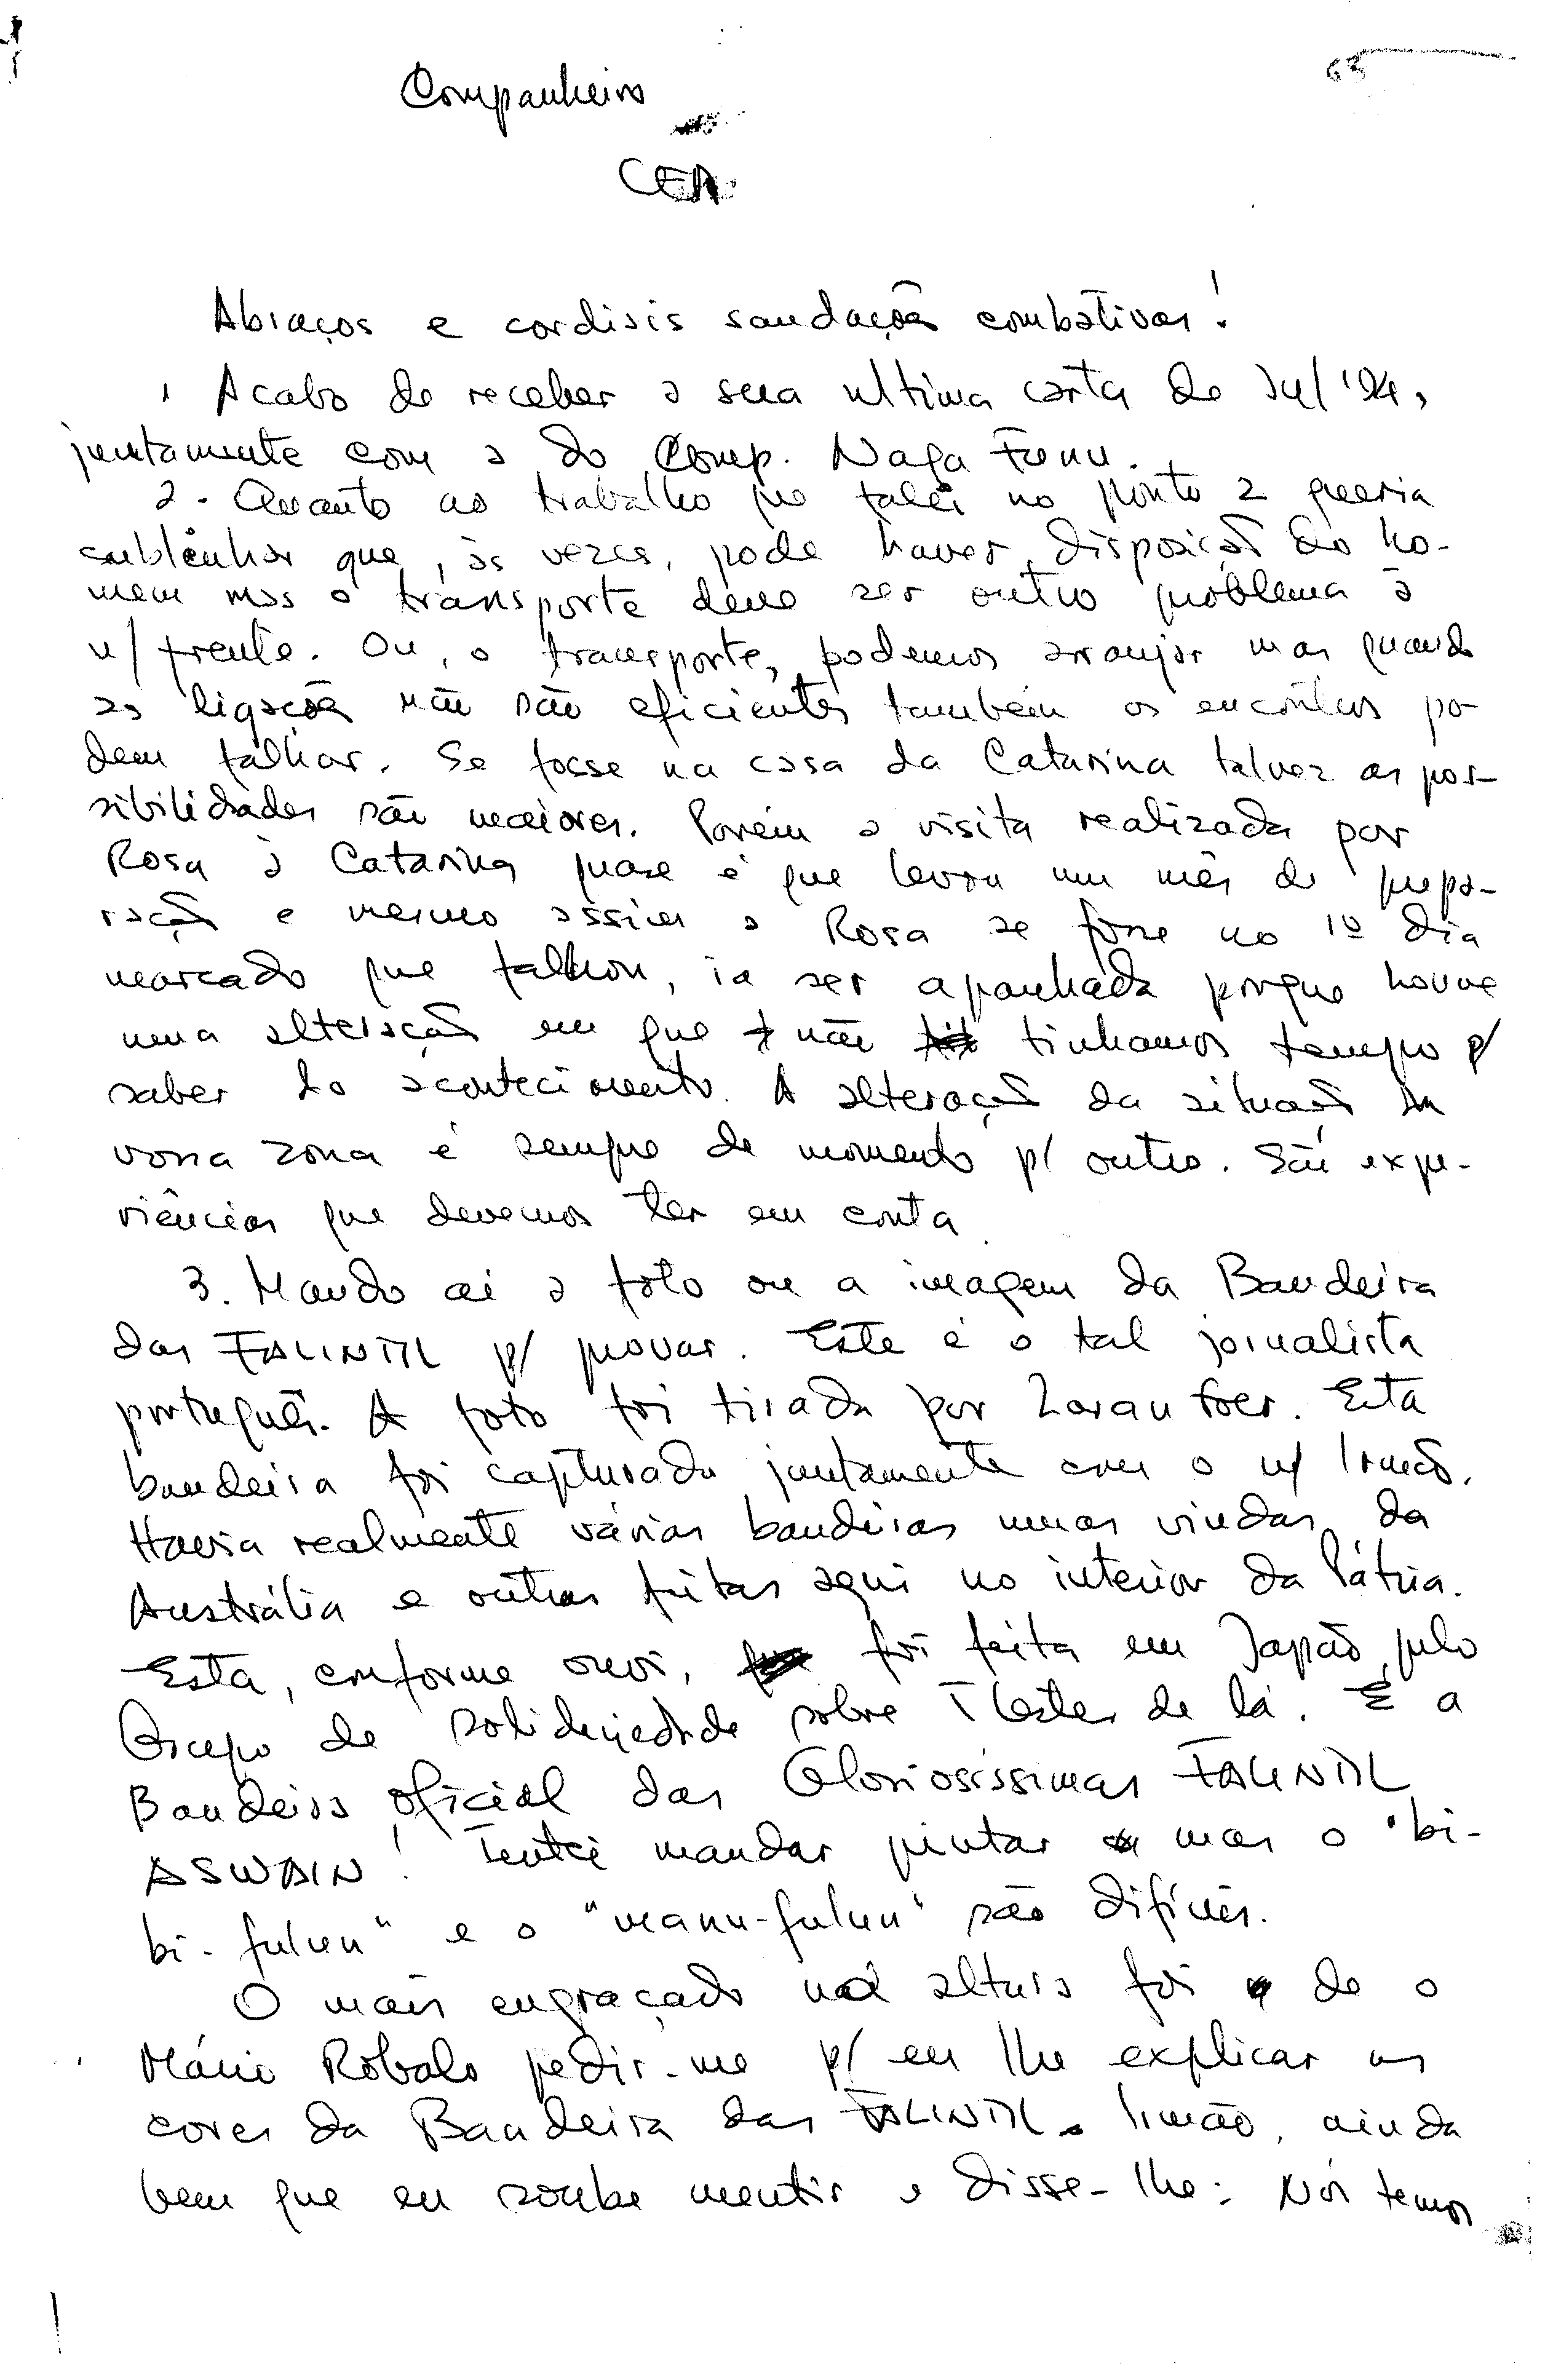 63
Companheiro
CEA
Abraços e cordiais saudações combativas!
1 Acabo de receber a sua ultima carta de Jul/'94,
juntamente com a do Comp. Naga Funu.
2. Quanto ao trabalho que falei no ponto 2 queria
sublinhar que, às vezes, pode haver disposição do ho-
mem mas o transporte deve ser outro problema à
n/ frente. Ou, o transporte, podemos arranjar mas quando
as ligações não são eficientes também os encontros po-
dem falhar. Se fosse na casa da Catarina talvez as pos-
sibilidades são maiores. Porém a visita realizada por
Rosa à Catarina quase é que levou um mês de prepa-
ração e mesmo assim a Rosa se fosse no 1º dia
marcado que falhou, ia ser apanhada porque houve
uma alteração em que não tinhamos tempo p/
saber do acontecimento. A alteração da situação da
vossa zona é sempre de momento p/ outro. São expe-
riências que devemos ter em conta.
3. Mando aí a foto ou a imagem da Bandeira
das FALINTIL p/ provar. Este é o tal jornalista
português. A foto foi tirada por Loran Foer. Esta
bandeira foi capturada juntamente com o n/ Irmão.
Havia realmente várias bandeiras umas vindas da
Austrália e outras feitas aqui no interior da Pátria.
Esta, conforme ouvi, foi feita em Japão pelo
Grupo de solidariedade sobre T Leste de lá. É a
Bandeira oficial das Gloriosíssimas FALINTIL
ASWAIN! Tentei mandar pintar mas o "bi-
bi-fulun" e o "manu-fulun" são difíceis.
O mais engraçado na altura foi de o
Mário Robalo pedir-me p/ eu lhe explicar as
cores da Bandeira das FALINTIL. Irmão, ainda
bem que eu soube mentir e disse-lhe: Nós temos